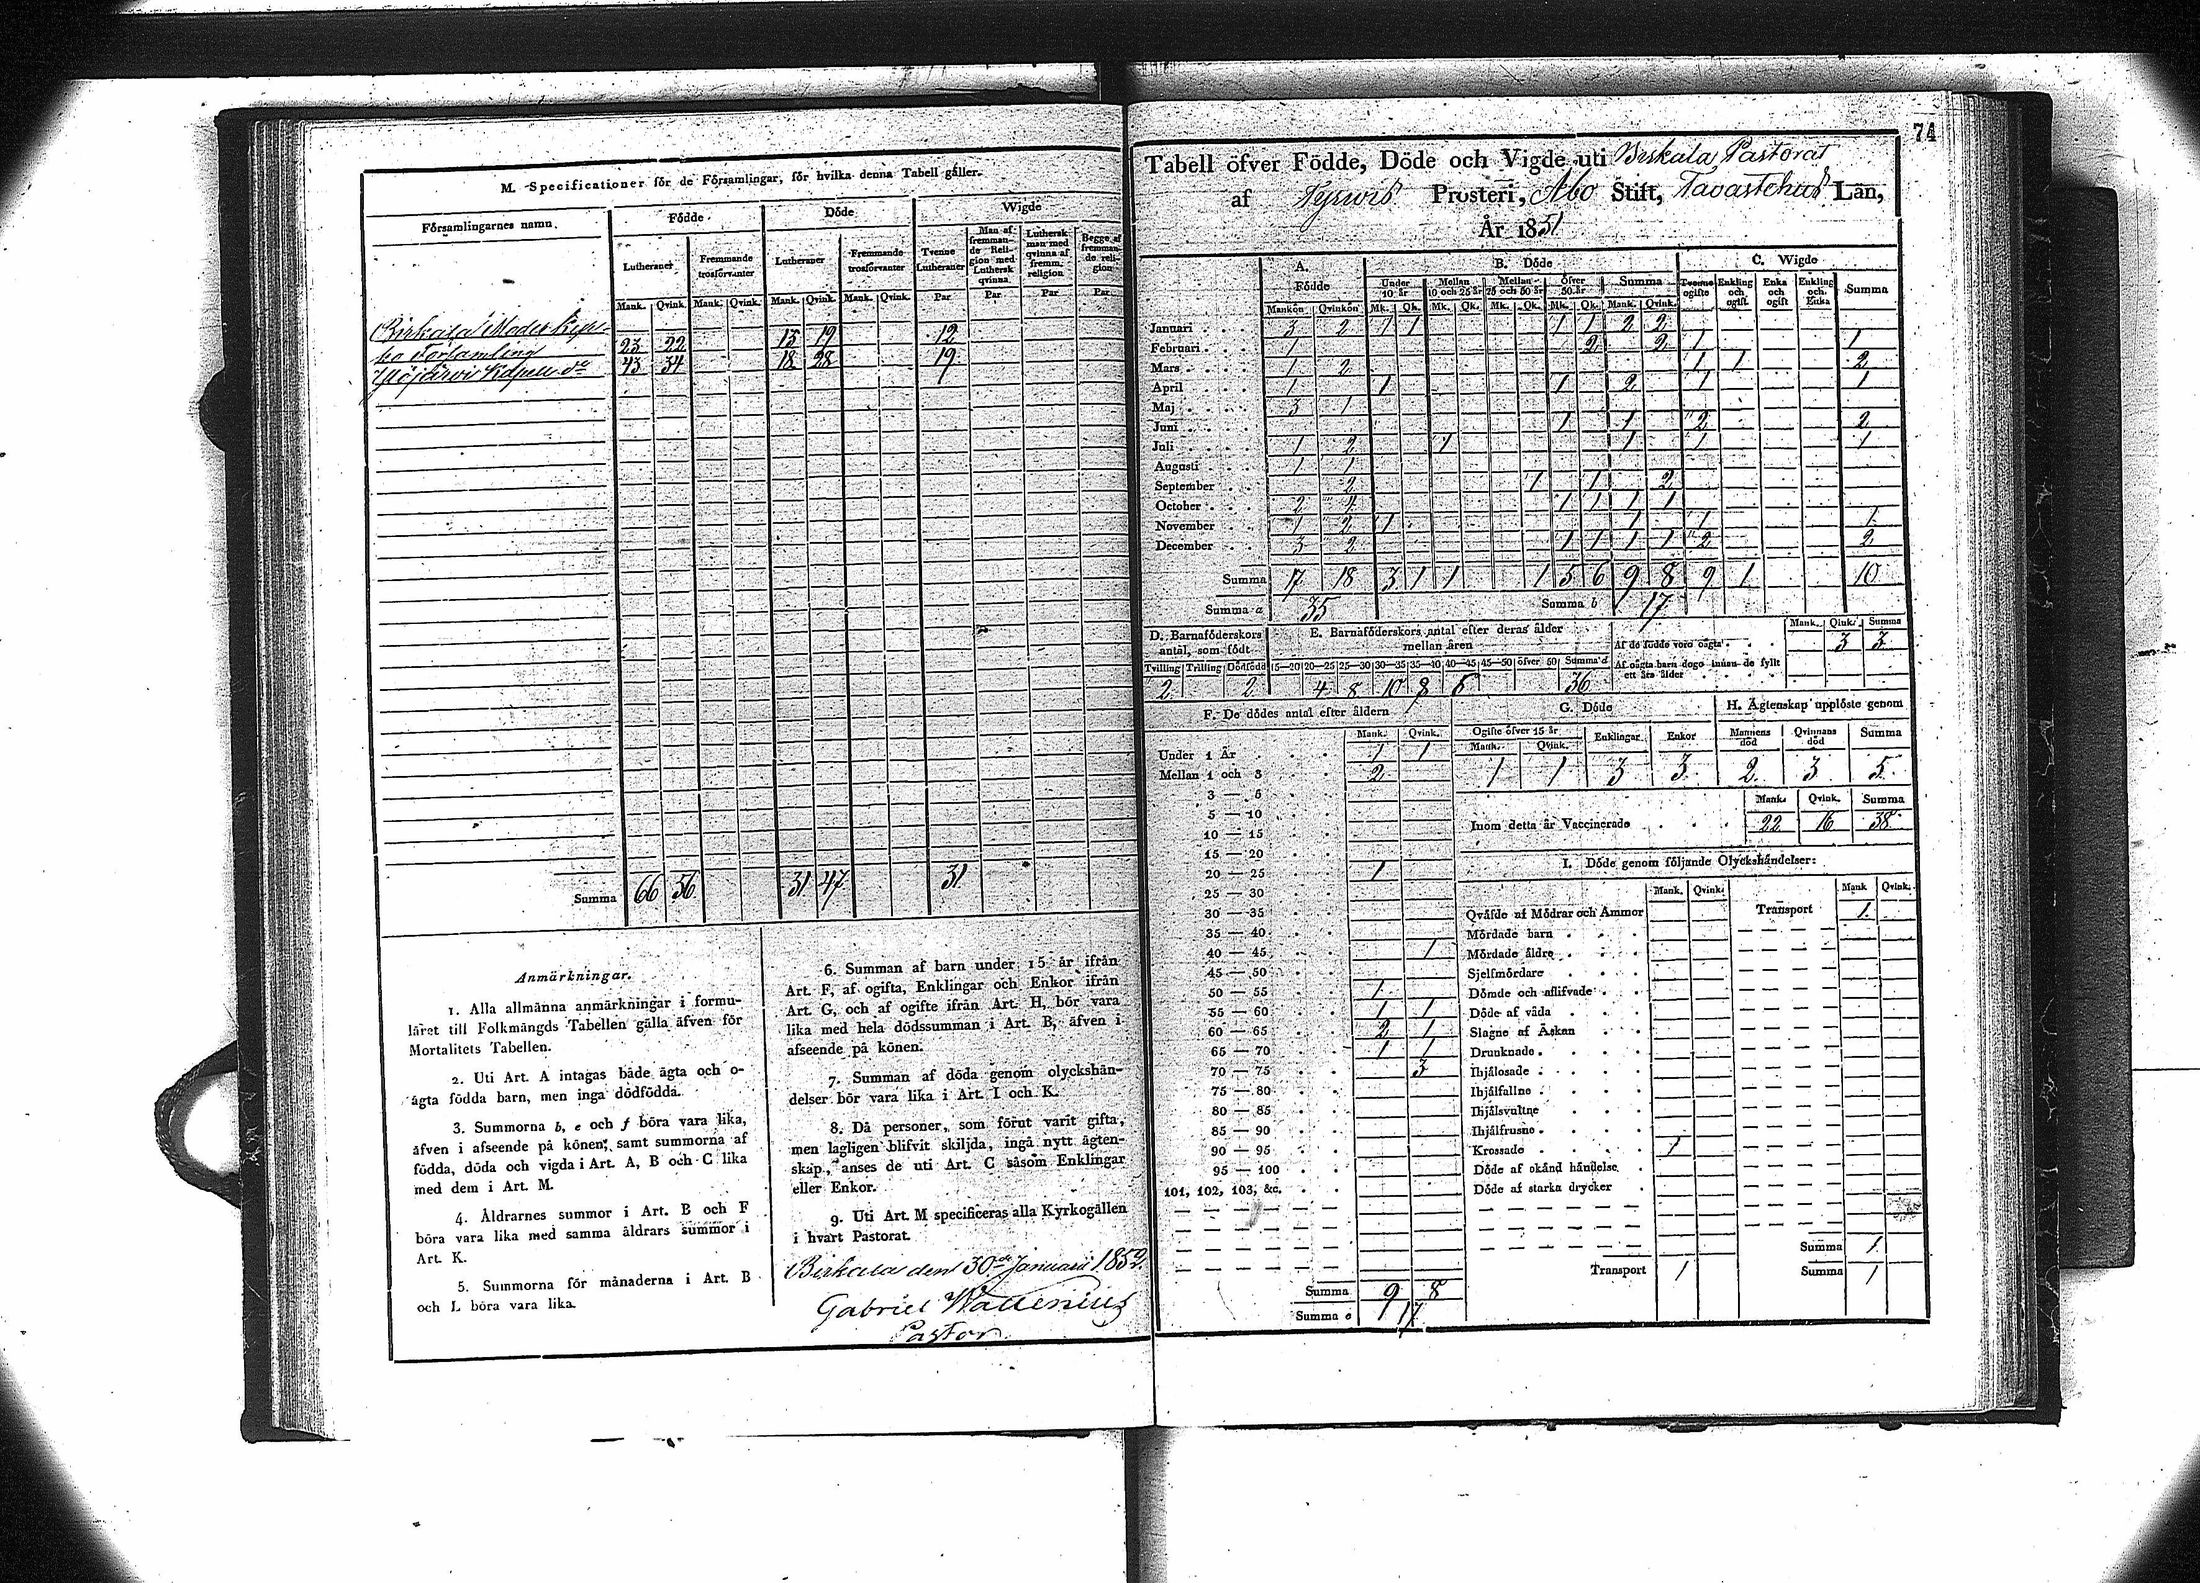 M. Specificationer för de Församlingar, för hvilka denna Tabell gäller.
Församlingarnes namn. Födde. Döde Wigde
Lutheraner Fremmande trosförvanter Lutheraner Fremmande trosförvanter Tvenne Lutheraner Man af fremmande Religion med Luthersk qvinna. Luthersk man med qvinna af fremm. religion Begge af fremmande religion
Mank. Qvink. Mank. Qvink. Mank. Qvink. Mank. Qvink. Par Par Par Par
Birkala Moder Kyr-
ko Församling 23 22 13 19 12
Ylöjärvi Kapell do 43 34 18 28 19
Summa 66 56 31 47 31
Anmärkningar.
1. Alla allmänna anmärkningar i formu-
läret till Folkmängds Tabellen gälla äfven för
Mortalitets Tabellen.
2. Uti Art. A intagas både ägta och o-
ägta födda barn, men inga dödfödda.
3. Summorna b, e och f böra vara lika,
äfven i afseende på könen; samt summorna af
födda, döda och vigda i Art. A, B och C lika
med dem i Art. M.
4. Åldrarnes summor i Art. B och F
böra vara lika med samma åldrars summor i
Art. K.
5. Summorna för månaderna i Art. B
och L böra vara lika.
6. Summan af barn under 15 år ifrån
Art. F, af ogifta, Enklingar och Enkor ifrån
Art. G, och af ogifte ifrån Art. H, bör vara
lika med hela dödssumman i Art. B, äfven i
afseende på könen.
7. Summan af döda genom olyckshän-
delser bör vara lika i Art. I och K.
8. Då personer, som förut varit gifta,
men lagligen blifvit skiljda, ingå nytt ägten-
skap, anses de uti Art. C såsom Enklingar
eller Enkor.
9. Uti Art. M specificeras alla Kyrkogällen
i hvart Pastorat.
Birkala den 30de Januarii 1852.
Gabriel Wallenius
Pastor
74
Tabell öfver Födde, Döde och Vigde uti Birkala Pastorat
af Tyrvis Prosteri, Abo Stift, Tavastehus Län,
År 1851
A. Födde B. Döde C. Wigde
Under 10 år Mellan 10 och 25 år Mellan 25 och 50 år Öfver 50 år Summa Tvenne ogifte Enkling och ogift Enka och ogift Enkling och Enka Summa
Mankön Qvinkön Mk. Qk. Mk. Qk. Mk. Qk. Mk. Qk. Mank. Qvink.
Januari 3 2 1 1 1 1 2 2
Februari 1 2 2 1 1
Mars 1 2 1 1 2
April 1 1 1 2 1 1
Maj 3 1
Juni 1 1 2 2
Juli 1 2 1 1 1 1
Augusti 1 1
September 2 1 1 2
October 2 4 1 1 1 1
November 1 2 1 1 1 1
December 3 2 1 1 1 1 2 2
Summa 17 18 3 1 1 1 5 6 9 8 9 1 10
Summa a 35 Summa b 17
D. Barnaföderskors antal, som födt
E. Barnaföderskors antal efter deras ålder mellan åren
Mank. Qink. Summa
Af de födde voro oägta 3 3
Af oägta barn dogo innan de fyllt ett års ålder
Tvilling Trilling Dödfödd 15—20 20—25 25—30 30—35 35—40 40—45 45—50 öfver 50 Summa d
2 2 4 8 10 8 6 36
F. De dödes antal efter åldern
Mank. Qvink.
Under 1 År 1 1
Mellan 1 och 3 2
3 — 5
5 — 10
10 — 15
15 — 20
20 — 25 1
25 — 30
30 — 35
35 — 40
40 — 45 1
45 — 50
50 — 55 1
55 — 60 1 1
60 — 65 2 1
65 — 70 1 1
70 — 75 3
75 — 80
80 — 85
85 — 90
90 — 95
95 — 100
101, 102, 103, &c.
Summa 9 8
Summa e 17
G. Döde H. Ägtenskap upplöste genom
Ogifte öfver 15 år Enklingar Enkor Mannens död Qvinnans död Summa
Mank. Qvink.
1 1 3 3 2 3 5
Mank. Qvink. Summa
Inom detta år Vaccinerade 22 16 38
I. Döde genom följande Olyckshändelser:
Mank. Qvink. Mank Qvink.
Qväfde af Mödrar och Ammor Transport 1
Mördade barn
Mördade äldre
Sjelfmördare
Dömde och aflifvade
Döde af våda
Slagne af Åskan
Drunknade
Ihjälosade
Ihjälfallne
Ihjälsvultne
Ihjälfrusne
Krossade 1
Döde af okänd händelse
Döde af starka drycker
Summa 1
Transport 1 Summa 1